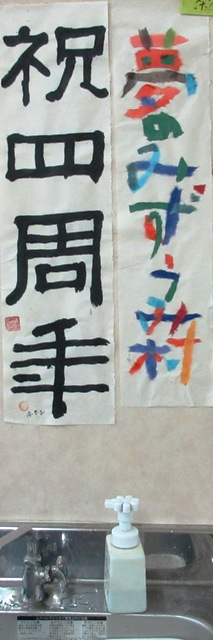 祝四周年
夢のみずうみ村